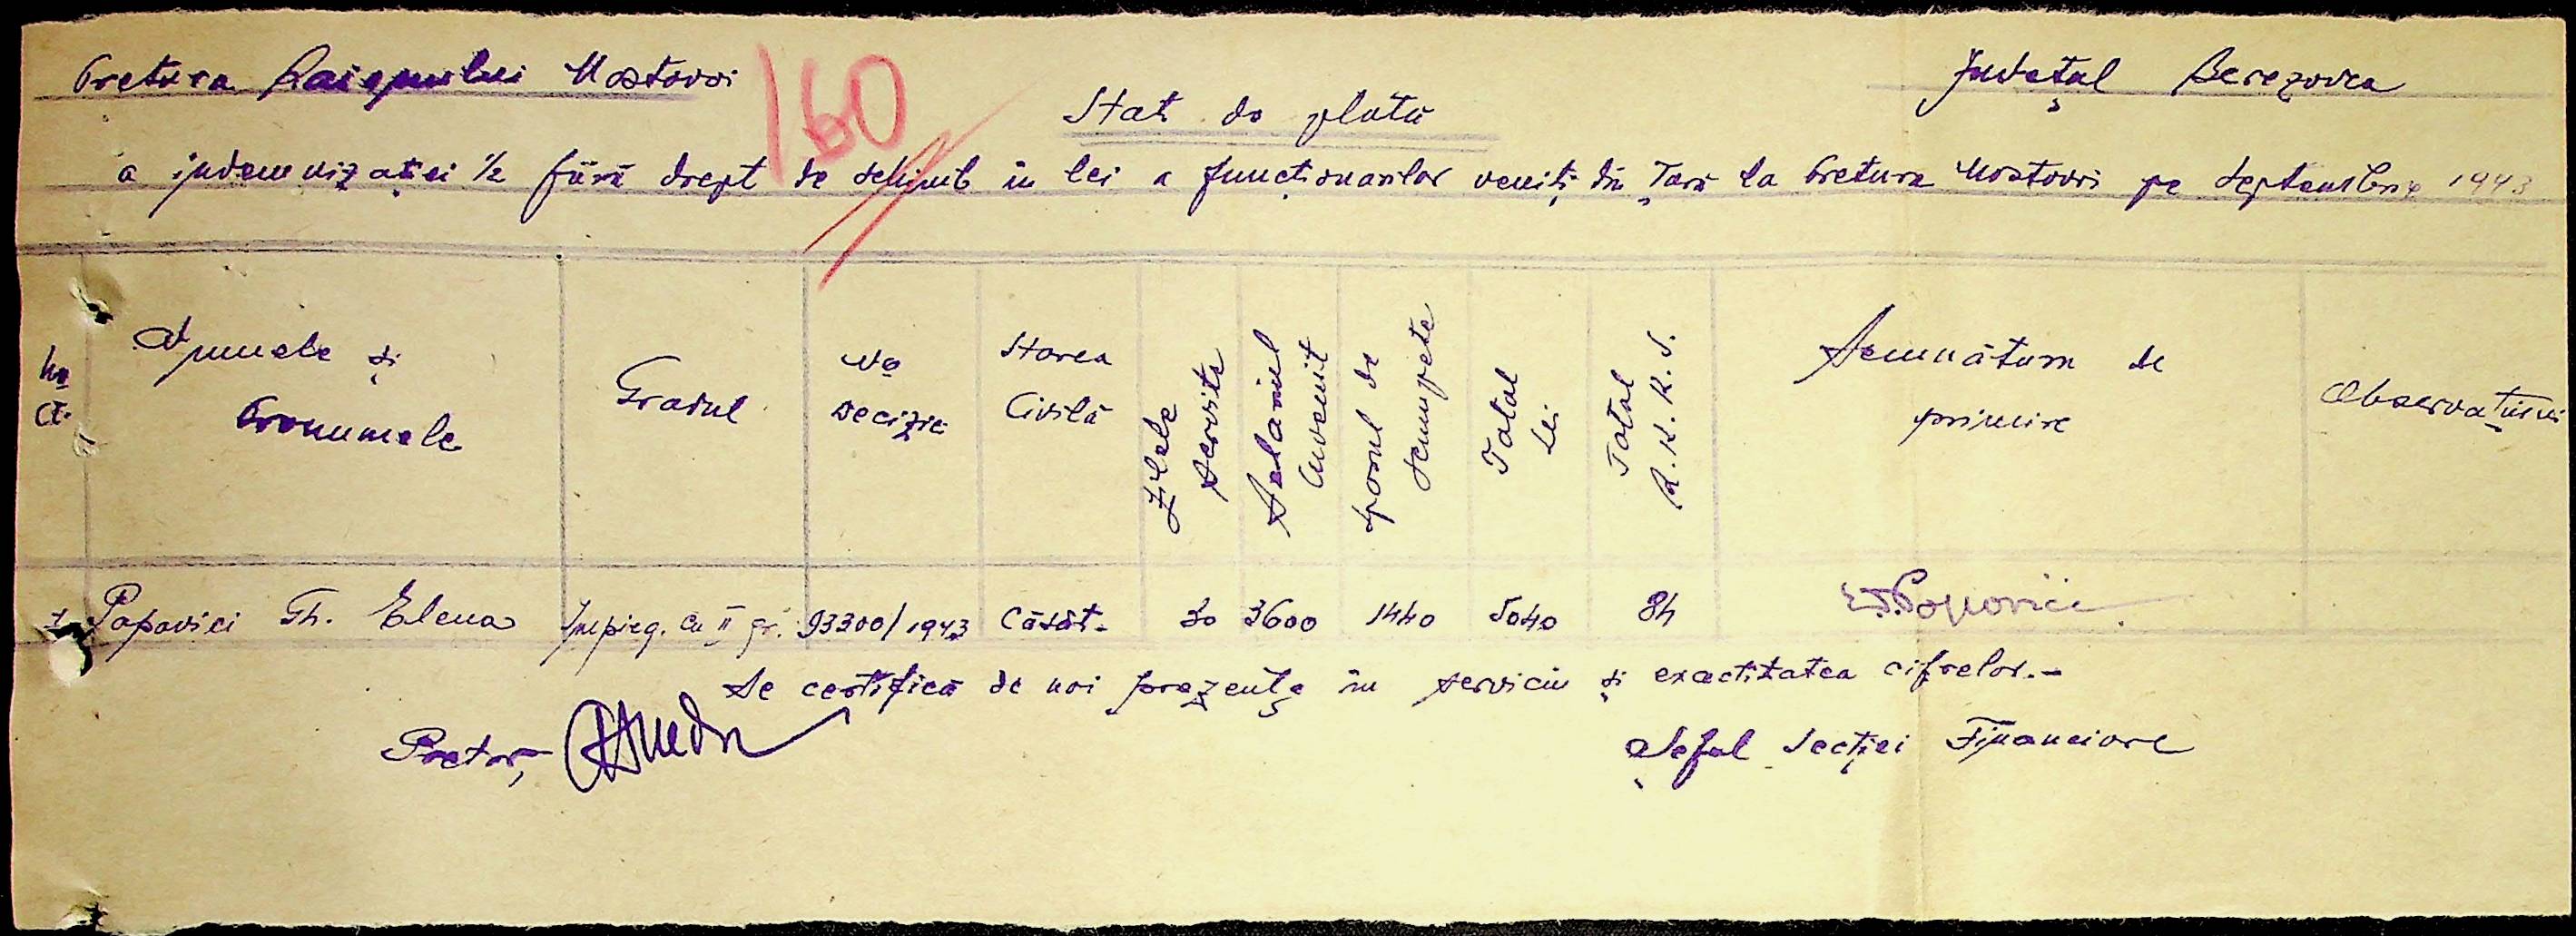 Pretura Raionului Mostovoi
Județul Berezovca
160
Stat de plată
a indemnizației 1/2 fără drept de schimb în lei a funcționarilor veniți din Țară la Pretura Mostovoi pe Septembrie 1943
No Ct.
Numele și Pronumele
Gradul
No Decizie
Starea Civilă
Zilele servite
Salariul cuvenit
Sporul de scumpete
Total Lei
Total R.K.K.S.
Semnătura de primire
Observațiuni
1 Popovici Gh. Elena Impieg. cu II gr. 93300/1943 Căsăt. 30 3600 1440 5040 84 Popovici
Se certifică de noi prezența în serviciu și exactitatea cifrelor.-
Pretor,
Șeful Secției Financiare